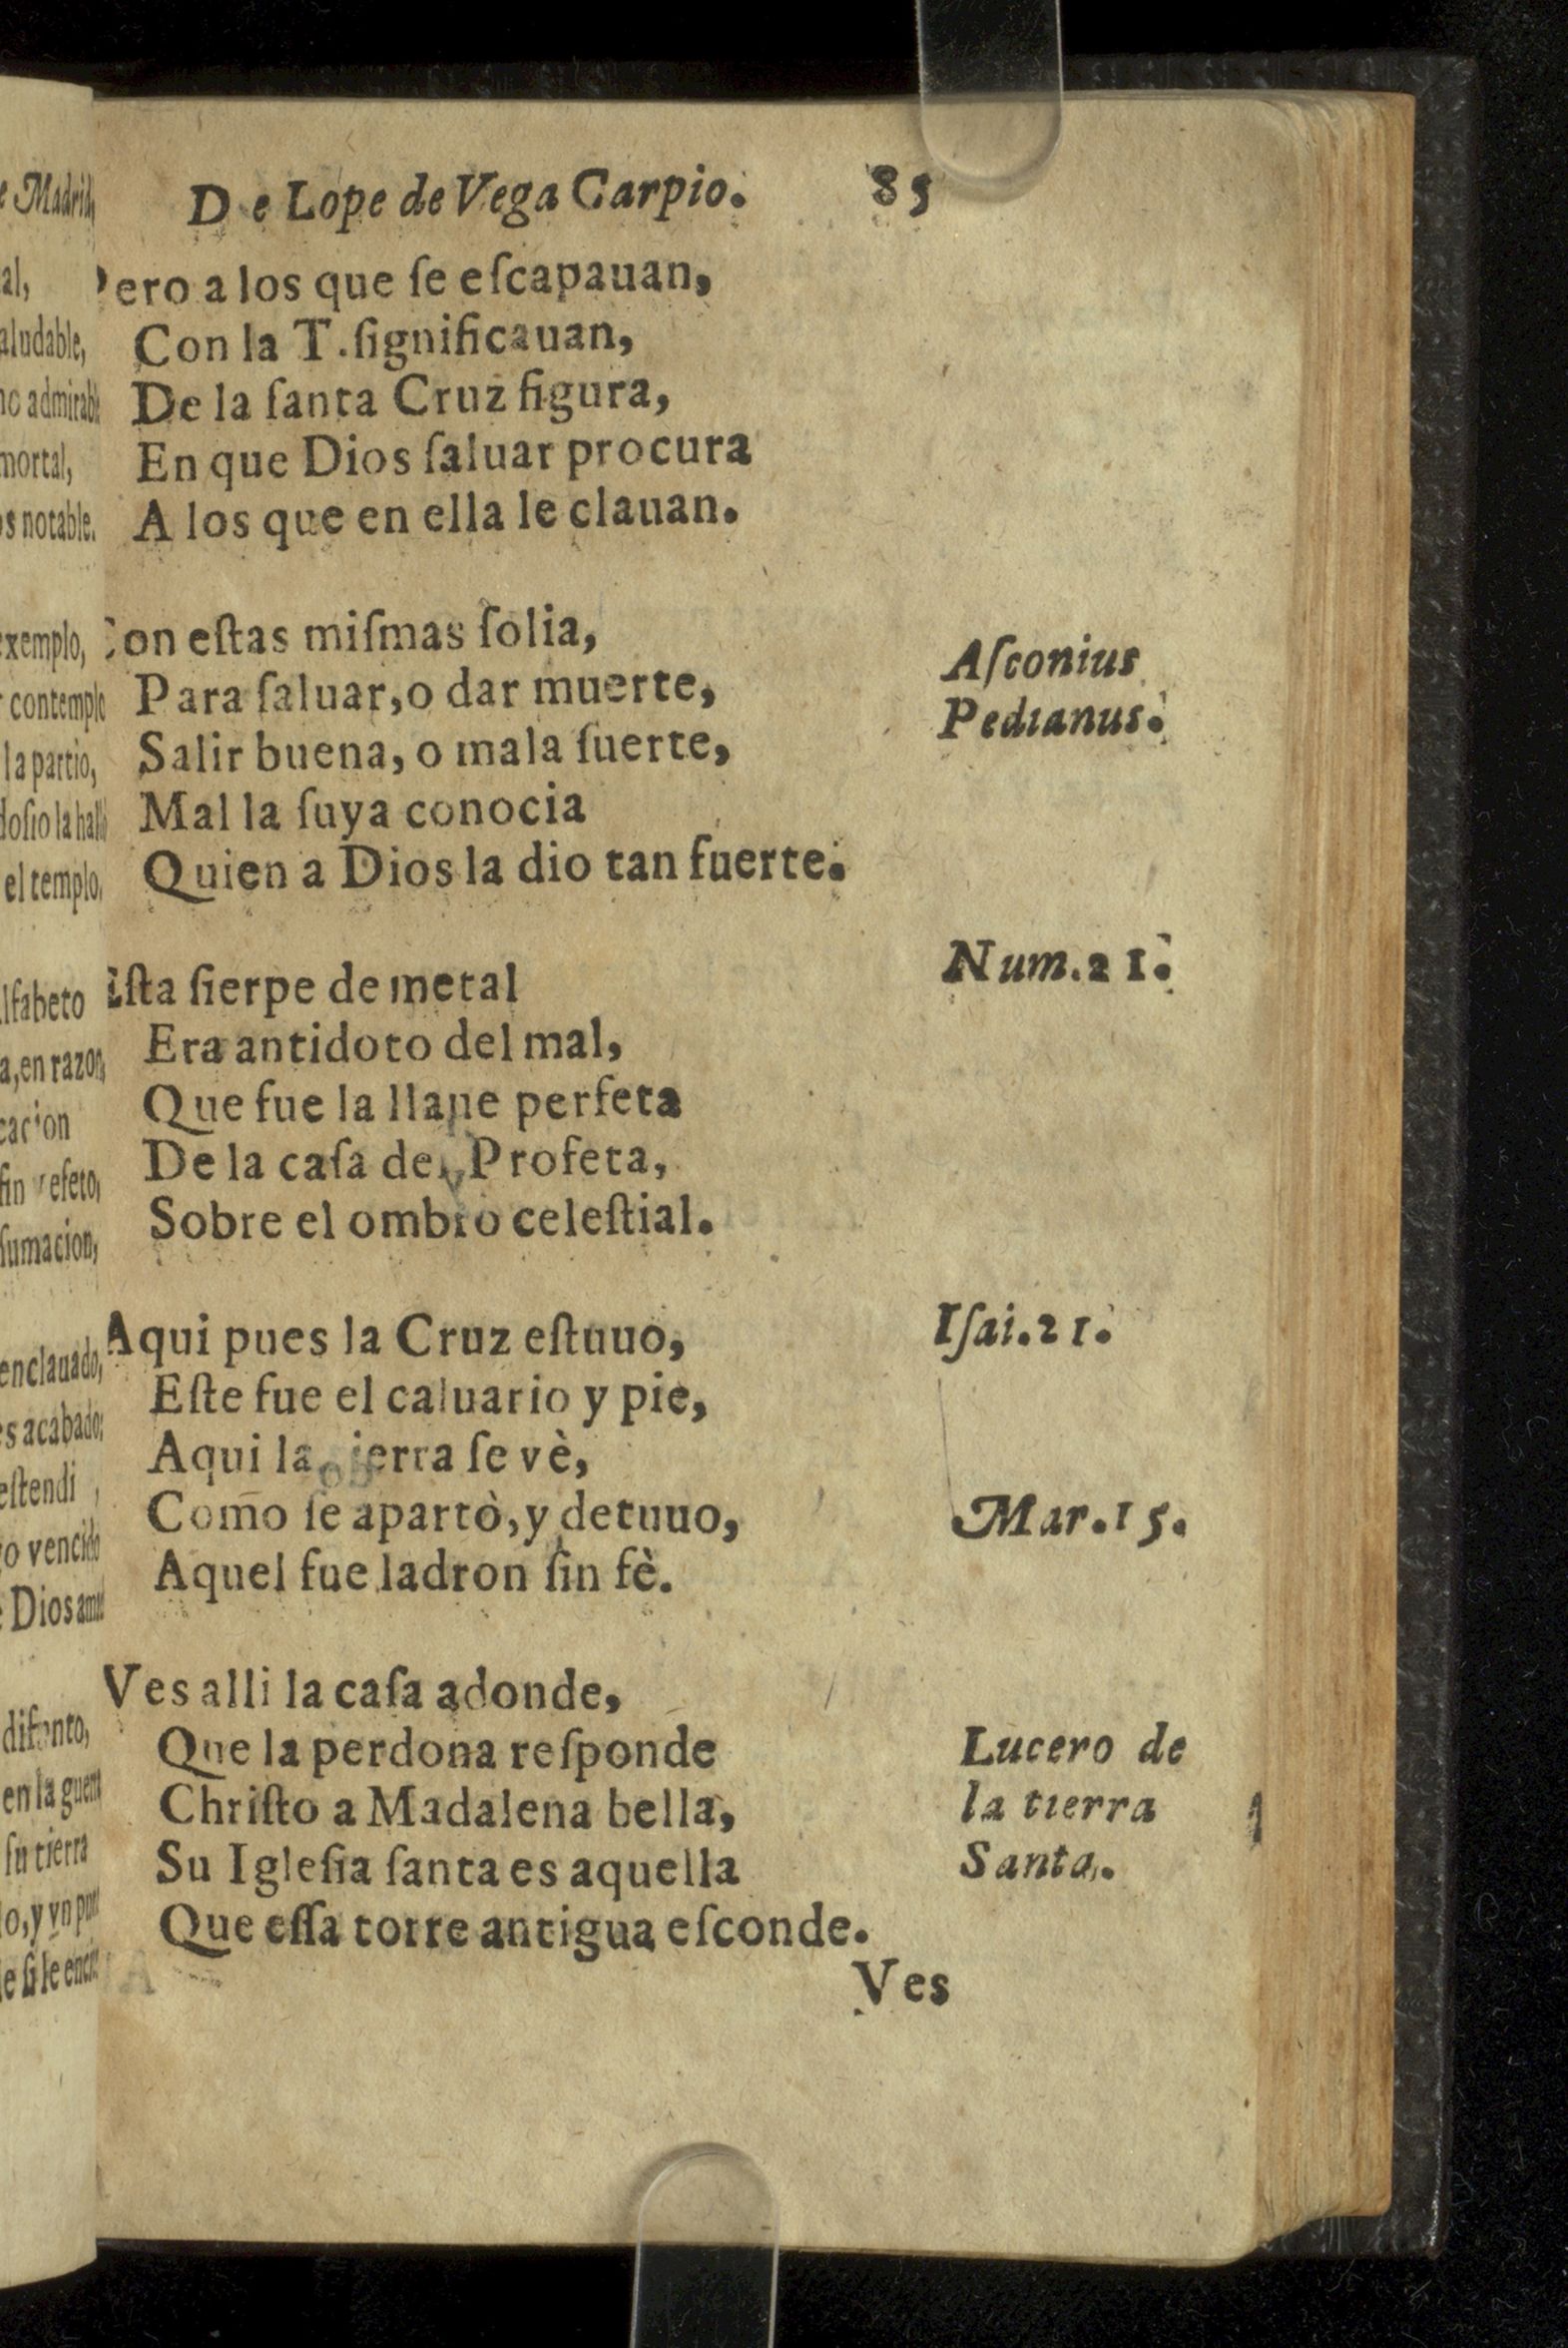 De Lope de Vega Carpio. 85
Pero a los que ſe eſcapauan,
Con la T. ſignificauan,
De la ſanta Cruz figura,
En que Dios ſaluar procura
A los que en ella le clauan.
Con eſtas miſmas ſolia,
Para ſaluar, o dar muerte,
Salir buena, o mala ſuerte,
Mal la ſuya conocia
Quien a Dios la dio tan fuerte.
Aſconius
Pedianus.
Eſta ſierpe de metal
Era antidoto del mal,
Que fue la llaue perfeta
De la caſa del Profeta,
Sobre el ombro celeſtial.
Num. 21.
Aqui pues la Cruz eſtuuo,
Eſte fue el caluario y pie,
Aqui la tierra ſe vè,
Como ſe apartò, y detuuo,
Aquel fue ladron ſin fè.
Iſai. 21.
Mar. 15.
Ves alli la caſa adonde,
Que la perdona reſponde
Chriſto a Madalena bella,
Su Igleſia ſanta es aquella
Que eſſa torre antigua eſconde.
Lucero de
la tierra
Santa.
Ves
e Madrid,
al,
aludable,
mortal,
os notable.
exemplo,
la partio,
el templo,
lfabeto
a, en razon,
cacion
ſumacion,
enclauado,
es acabado:
eſtendi
ſu tierra